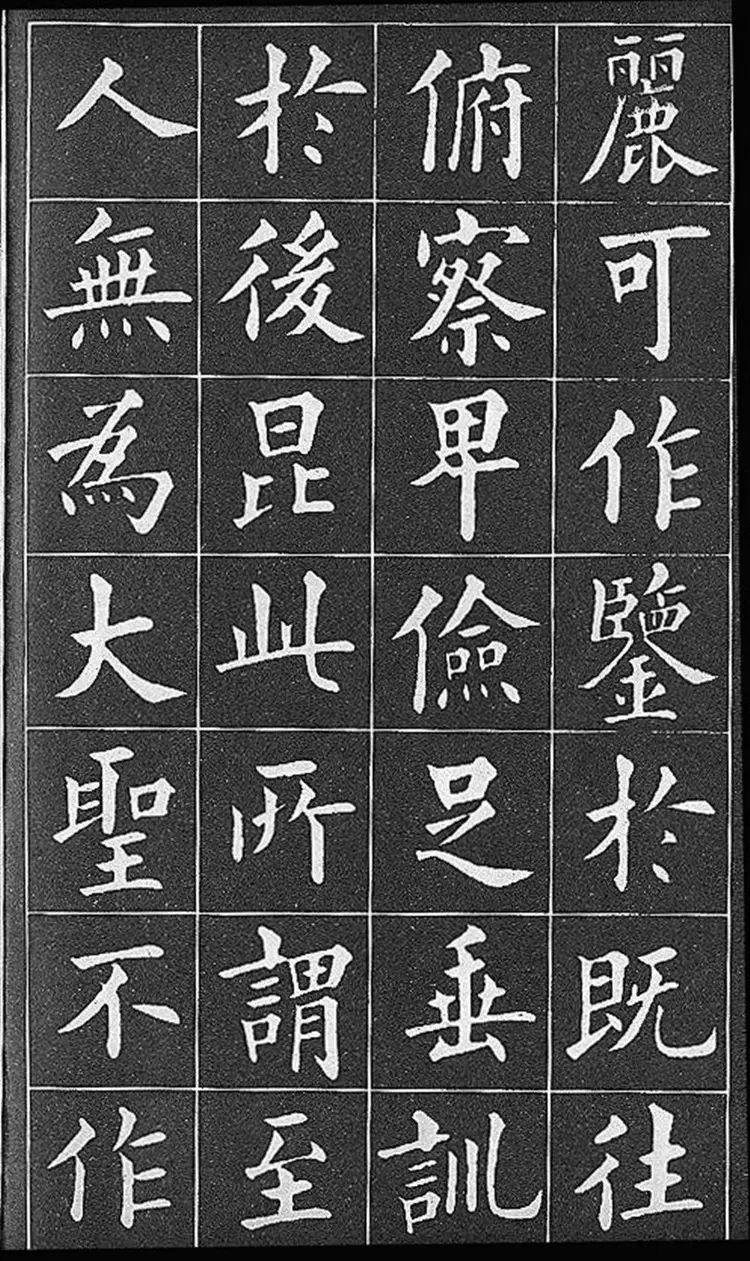 麗可作鑒於既往
俯察卑儉足垂訓
於後昆此所謂至
人無為大聖不作